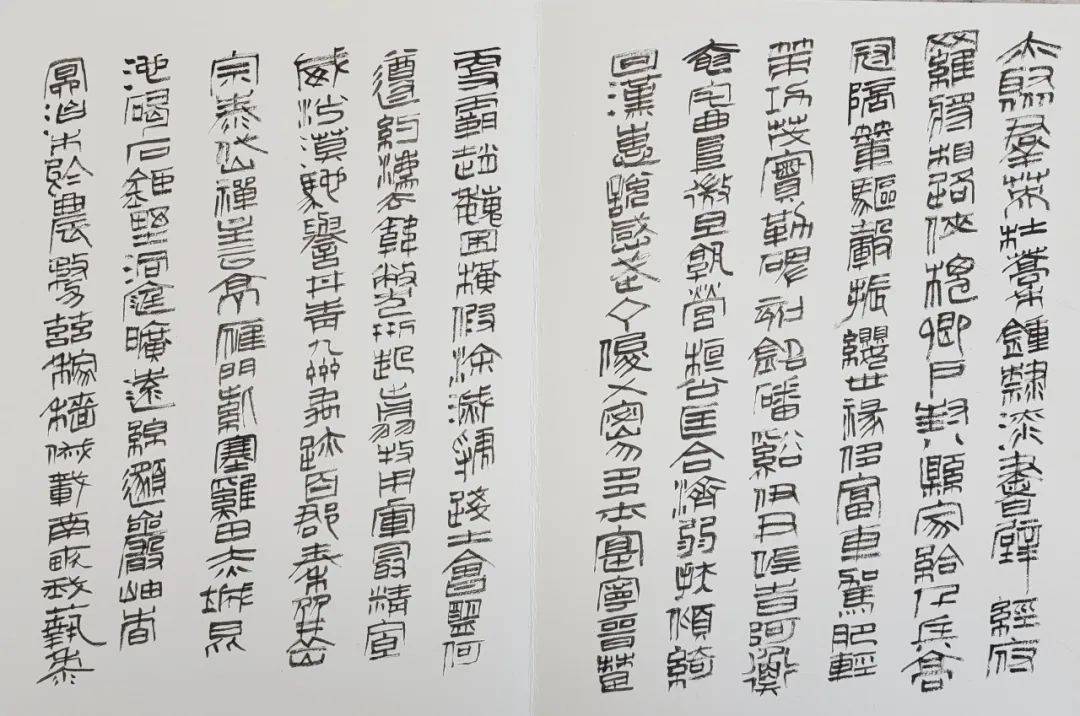 亦聚群英杜稾鍾隸漆書壁經府
羅將相路俠槐卿戶封八縣家給千兵高
冠陪輦驅轂振纓世祿侈富車駕肥輕
策功茂實勒碑刻銘磻谿伊尹佐時阿衡
奄宅曲阜微旦孰營桓公匡合濟弱扶傾綺
回漢惠說感武丁俊乂密勿多士寔寧晉楚
更霸趙魏困橫假涂滅虢踐土會盟何
遵約灋韓弊煩刑起翦牧用軍最精宣
威沙漠馳譽丹青九州禹跡百郡秦并岳
宗泰岱禪主云亭雁門紫塞雞田赤城昆
池碣石鉅野洞庭曠遠緜邈巖岫杳
冥治本於農務茲稼穡俶載南畝我藝黍